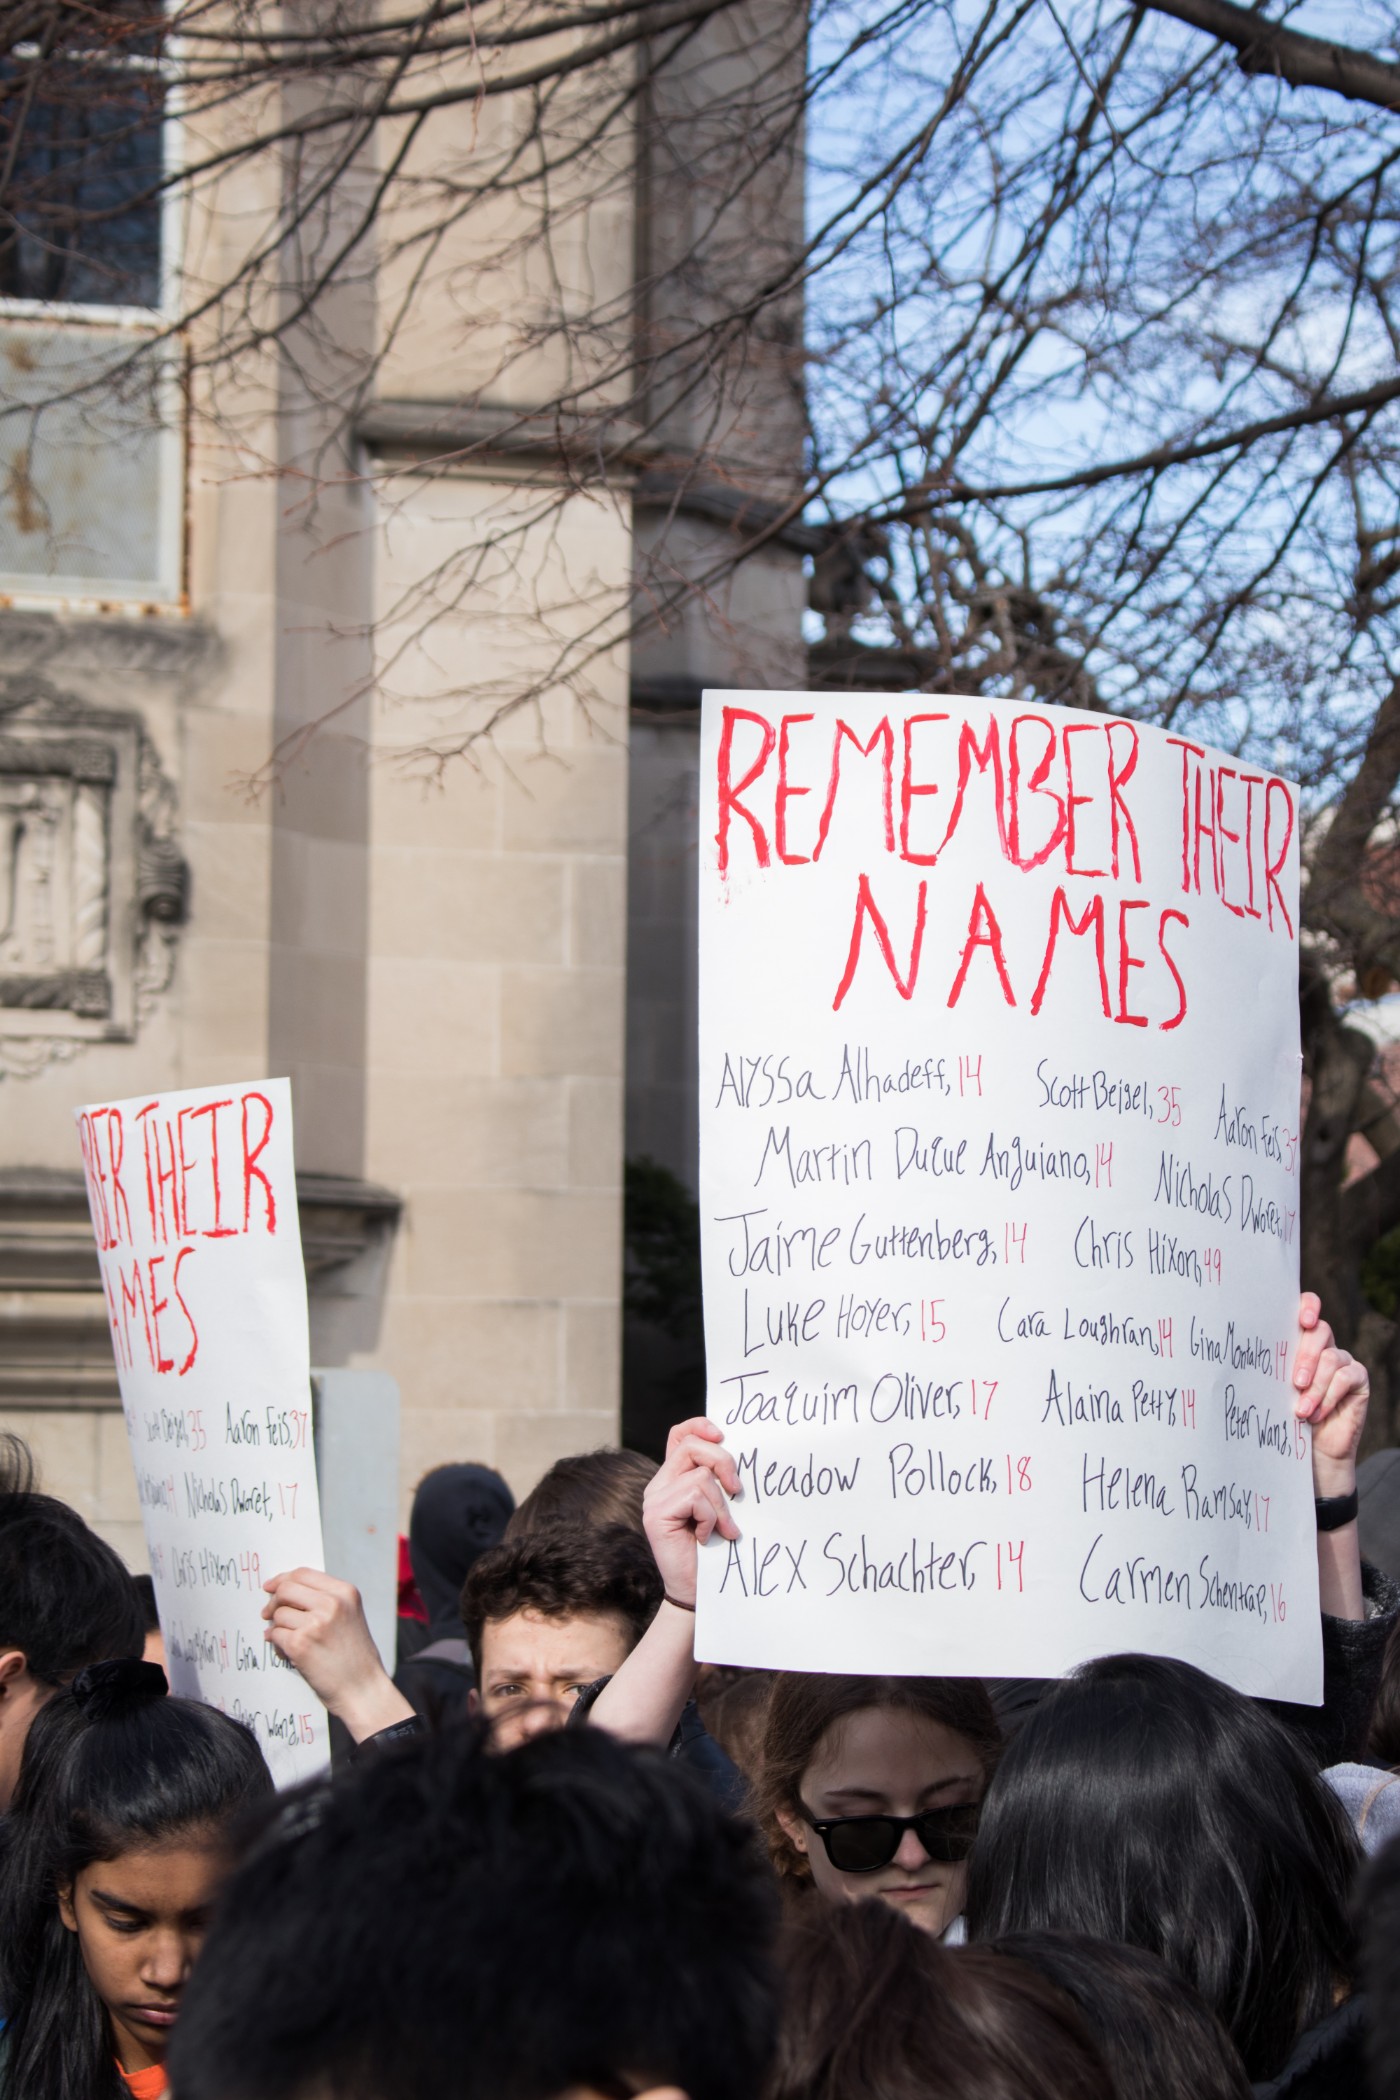 REMEMBER THEIR
NAMES
Alyssa Alhadeff, 14 Scott Beigel, 35 Aaron Feis, 37
Martin Duque Anguiano, 14 Nicholas Dworet, 17
Jaime Guttenberg, 14 Chris Hixon, 49
Luke Hoyer, 15 Cara Loughran, 14 Gina Montalto, 14
Joaquim Oliver, 17 Alaina Petty, 14 Peter Wang, 15
Meadow Pollock, 18 Helena Ramsay, 17
Alex Schachter, 14 Carmen Schentrap, 16
BER THEIR
AMES
Scott Beigel, 35 Aaron Feis, 37
Nicholas Dworet, 17
Chris Hixon, 49
Loughran, 14 Gina
Peter Wang, 15